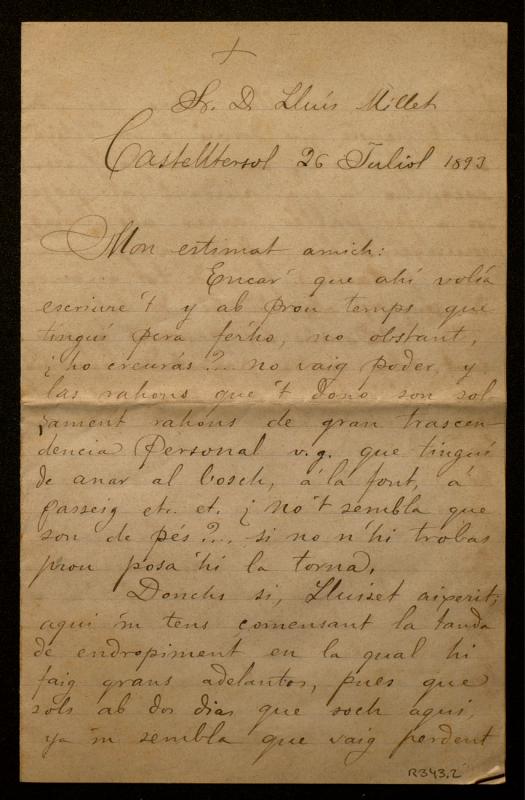 +
Sr. D. Lluís Millet
Castelltersol 26 Juliol 1893
Mon estimat amich:
Encar' que ahí volía
escriure 't y ab prou temps que
tinguí pera ferho, no obstant,
¿ho creurás?... no vaig poder, y
las rahons que 't dono son sol-
sament rahons de gran trascen-
dencia personal v.g. que tinguí
de anar al bosch, á la font, á
passeig etc. et. ¿No 't sembla que
son de pés?... si no n'hi trobas
prou posa 'hi la torna.
Donchs si, Lluiset aixerit;
aqui 'm tens comensant la tanda
de endropiment en la qual hi
faig grans adelantos, pues que
sols ab dos dias que soch aqui,
ya 'm sembla que vaig perdent
R343.2